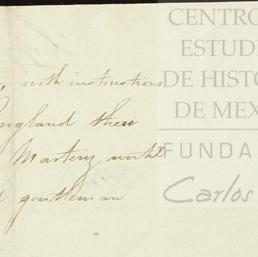 with instructions
England there
Martery until
gentleman
CENTRO
ESTUDI
DE HISTO
DE MEX
FUNDA
Carlos